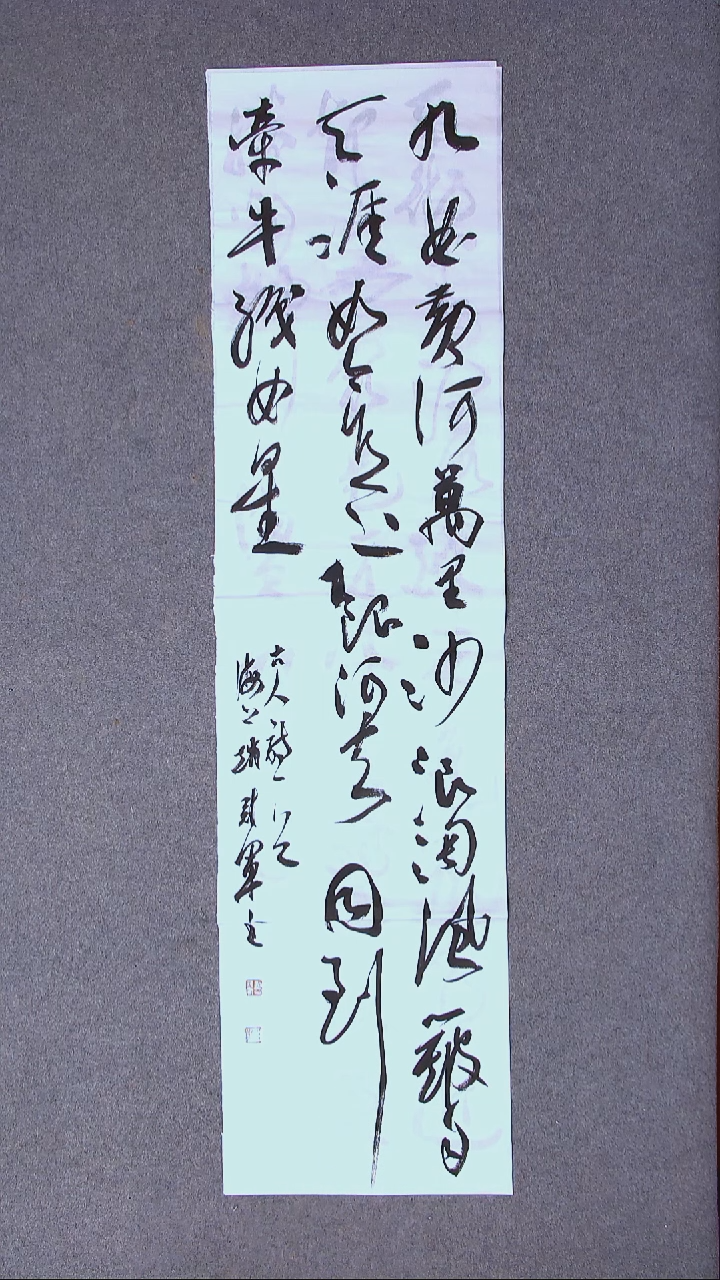 九曲黃河萬里沙浪淘風簸自
天涯如今直上銀河去同到
牽牛織女星
古人詩一
海上趙軍書